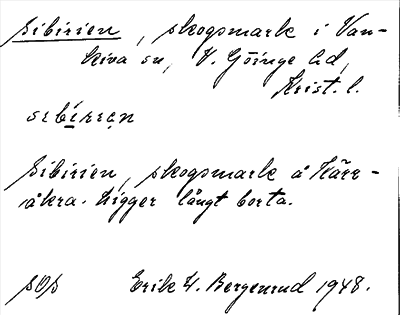 Sibirien, skogsmark i Van-
kiva sn, V. Göinge hd,
Krist. l.
sibi̱rrẹn
Sibirien, skogsmark å Kärr-
åkra. Ligger långt borta.
Erik W. Bergenrud 1948.